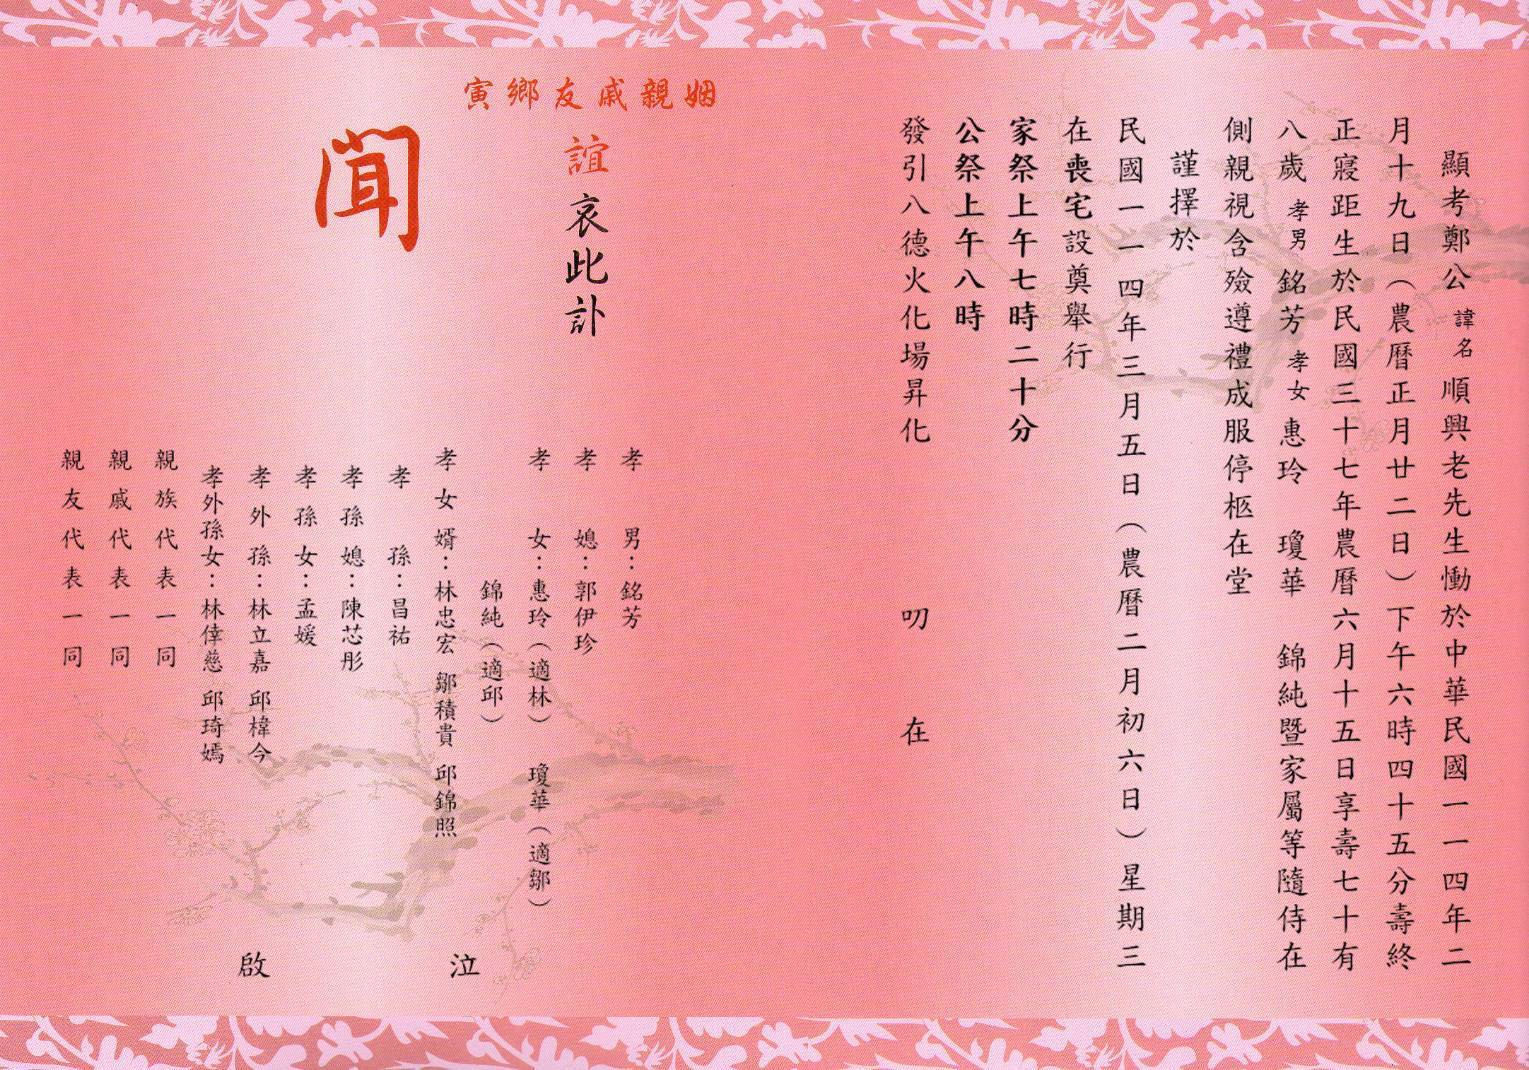 顯考鄭公諱名順興老先生慟於中華民國一一四年二
月十九日（農曆正月廿二日）下午六時四十五分壽終
正寢距生於民國三十七年農曆六月十五日享壽七十有
八歲孝男銘芳孝女惠玲 瓊華 錦純暨家屬等隨侍在
側親視含殮遵禮成服停柩在堂
謹擇於
民國一一四年三月五日（農曆二月初六日）星期三
在喪宅設奠舉行
家祭上午七時二十分
公祭上午八時
發引八德火化場昇化 叨在
姻親戚友鄉寅
誼哀此訃
聞
孝男：銘芳
孝媳：郭伊珍
孝女：惠玲（適林） 瓊華（適鄒）
錦純（適邱）
孝女婿：林忠宏 鄒積貴 邱錦照
孝孫：昌祐
孝孫媳：陳芯彤
孝孫女：孟媛
孝外孫：林立嘉 邱樟今
孝外孫女：林倖慈 邱琦嫣
親族代表一同
親戚代表一同
親友代表一同
泣啟